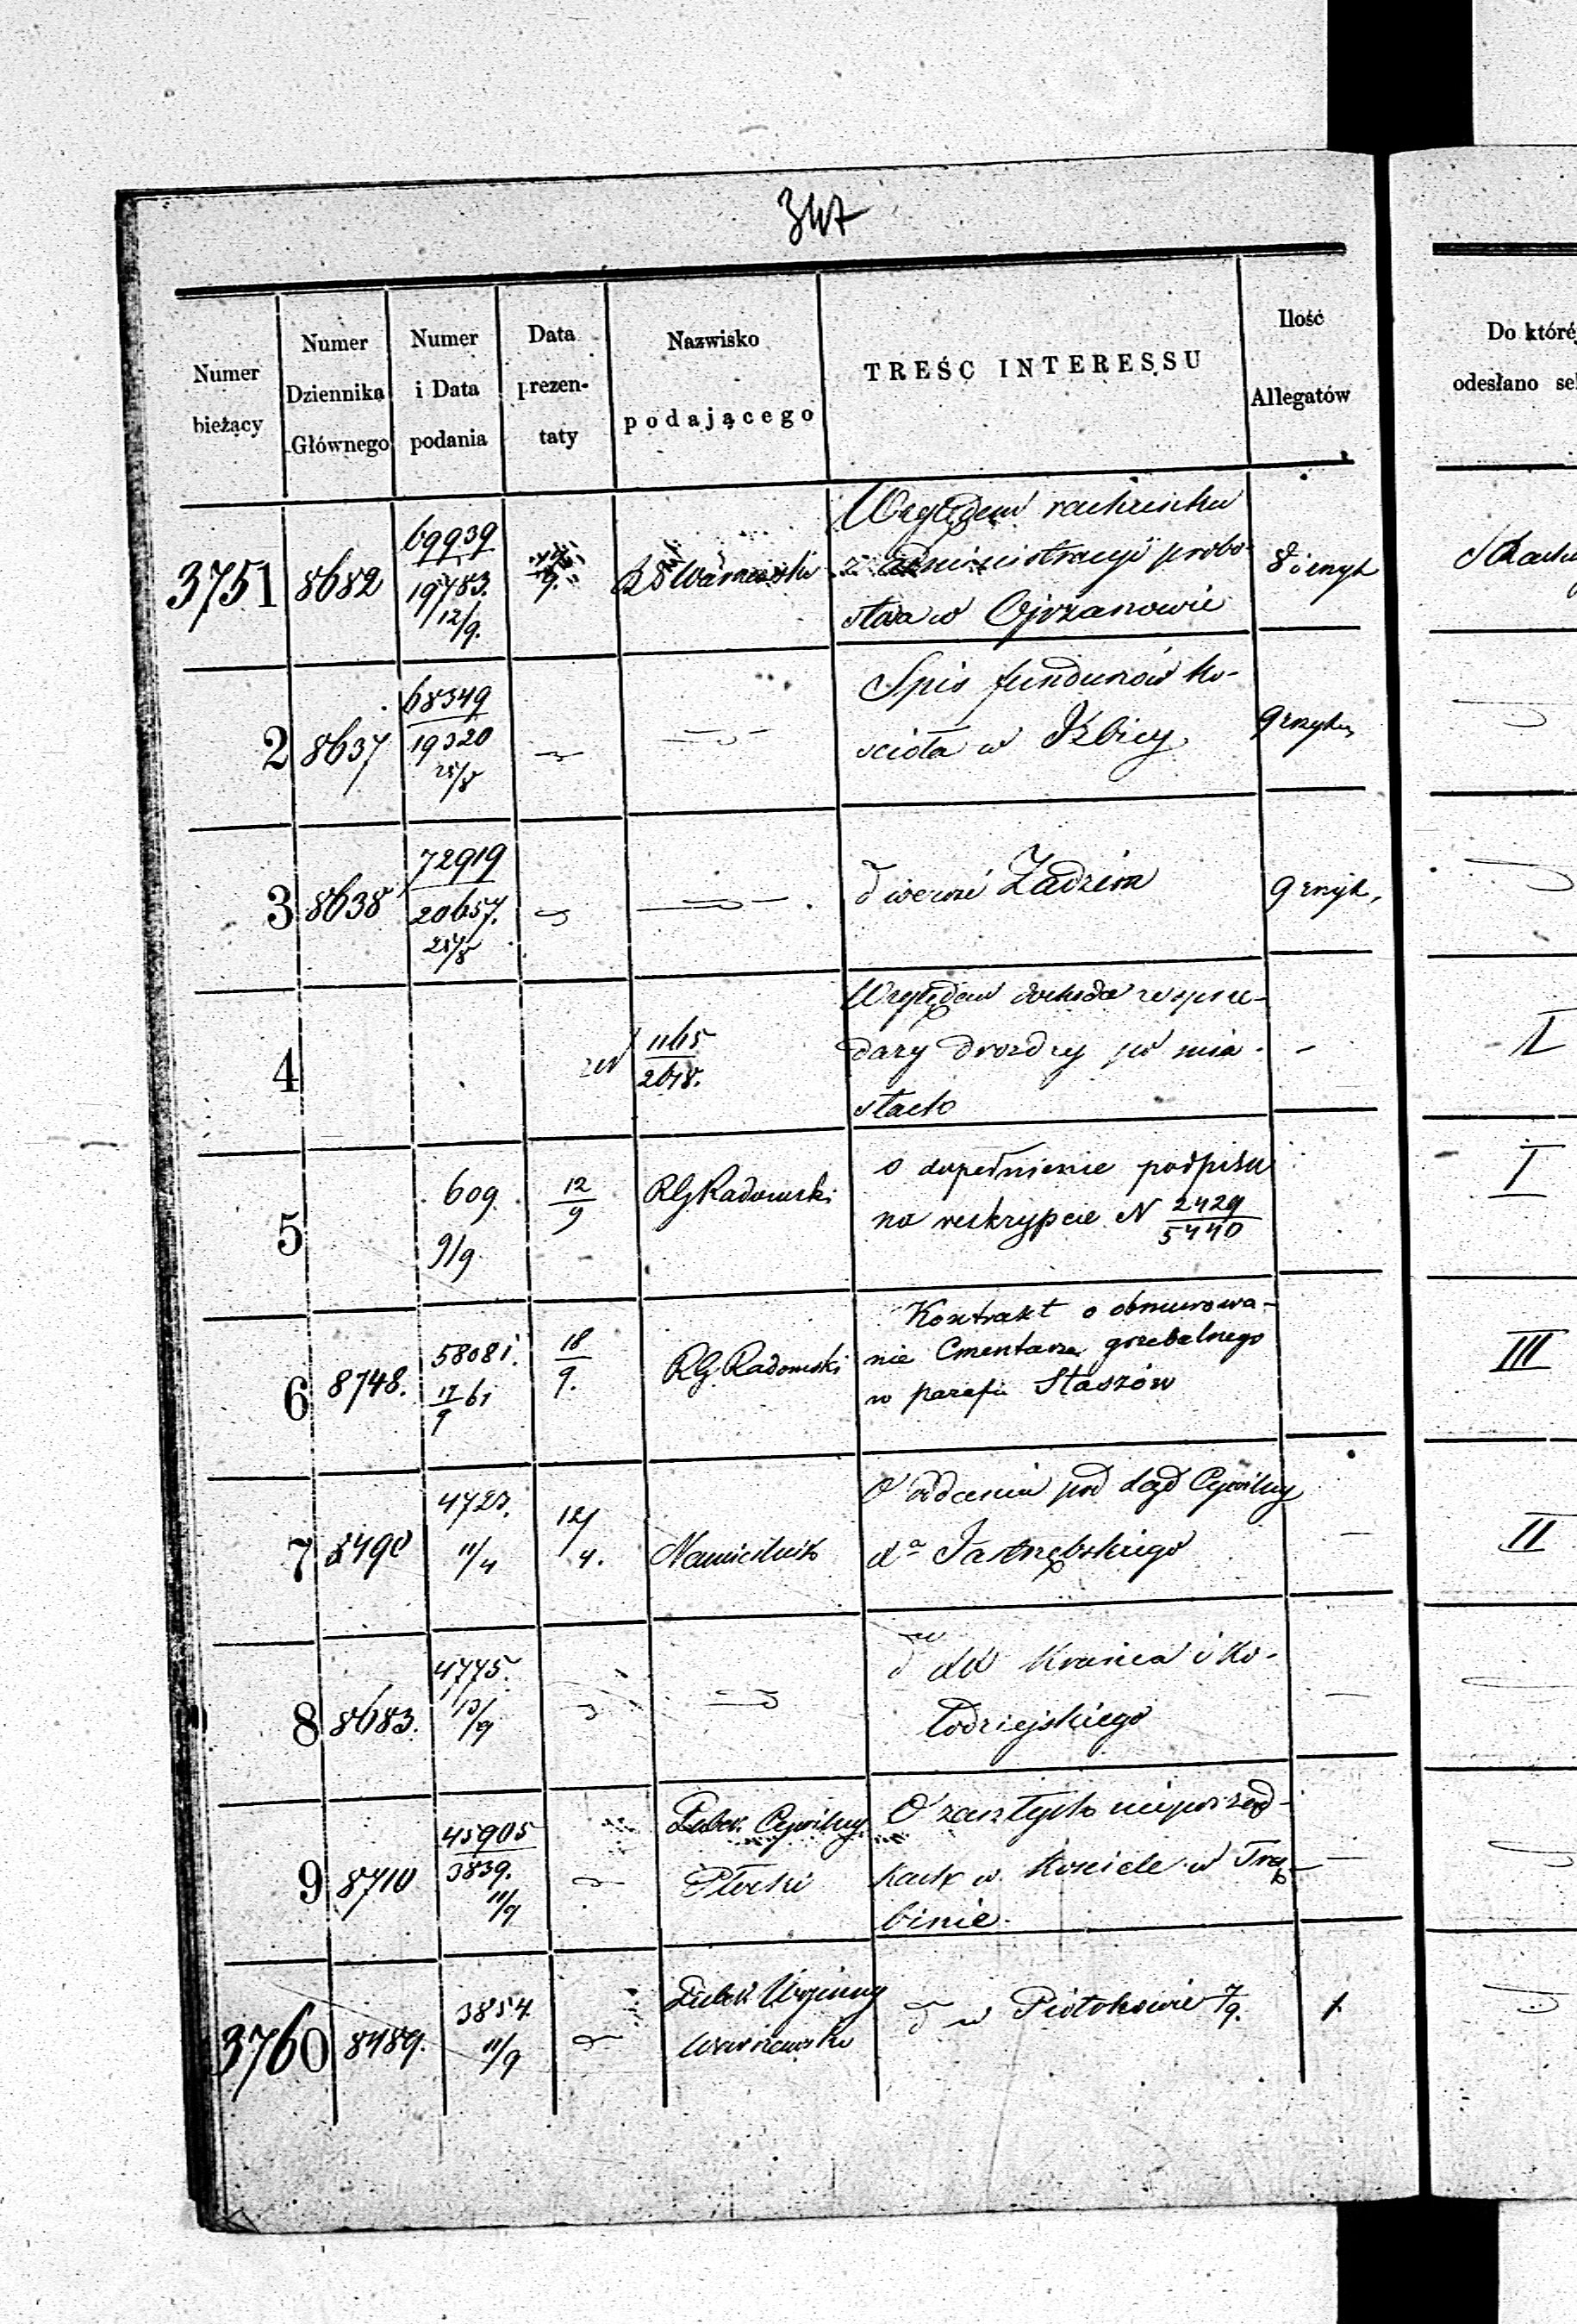 347
Numer bieżący
Numer Dziennika Głównego
Numer i Data podania
Data prezen- taty
Nazwisko podającego
TREŚC INTERESSU
Ilość Allegatów
Do któré
odesłano se
3751 8682 69939 19783. 12/9. 9. RG Warszawski
Względem rachunku
z administracyi probo-
stwa w Ojrzanowie
2 8637 68349 19320 25/8
Spis funduszów ko-
ścioła w Izbicy
3 8638 72919 20657. 8
Zadzim
9 zszyt.
4 1165 2618.
Względem dochodu ze sprze-
daży drożdży po mia-
stach
I
5 609 9/9 12/9 RG Radomski
o dopełnienie podpisu
na reskrypcie N 2429 5440
I
6 8748. 58081. 17/9 61 18/9. RG Radomski
Kontrakt o obmurowa-
nie Cmentarza grzebalnego
w parafii Staszów
III
7 8490 4723. 11/4 12/4. Namiestnik
O oddaniu pod Sąd Cywilny
Jastrzębskiego
II
8 8683. 4775. 13/9
Kranca i Ko-
łodziejskiego
9 8710 45905 3839. 11/9
Cywilny
Płocki
O zaszłych nieporząd-
kach w Kościele w Trę-
binie
3760 8489. 3854 11/9
Wojenny
Warszawski
w Piotrkowie 7/9. 1.